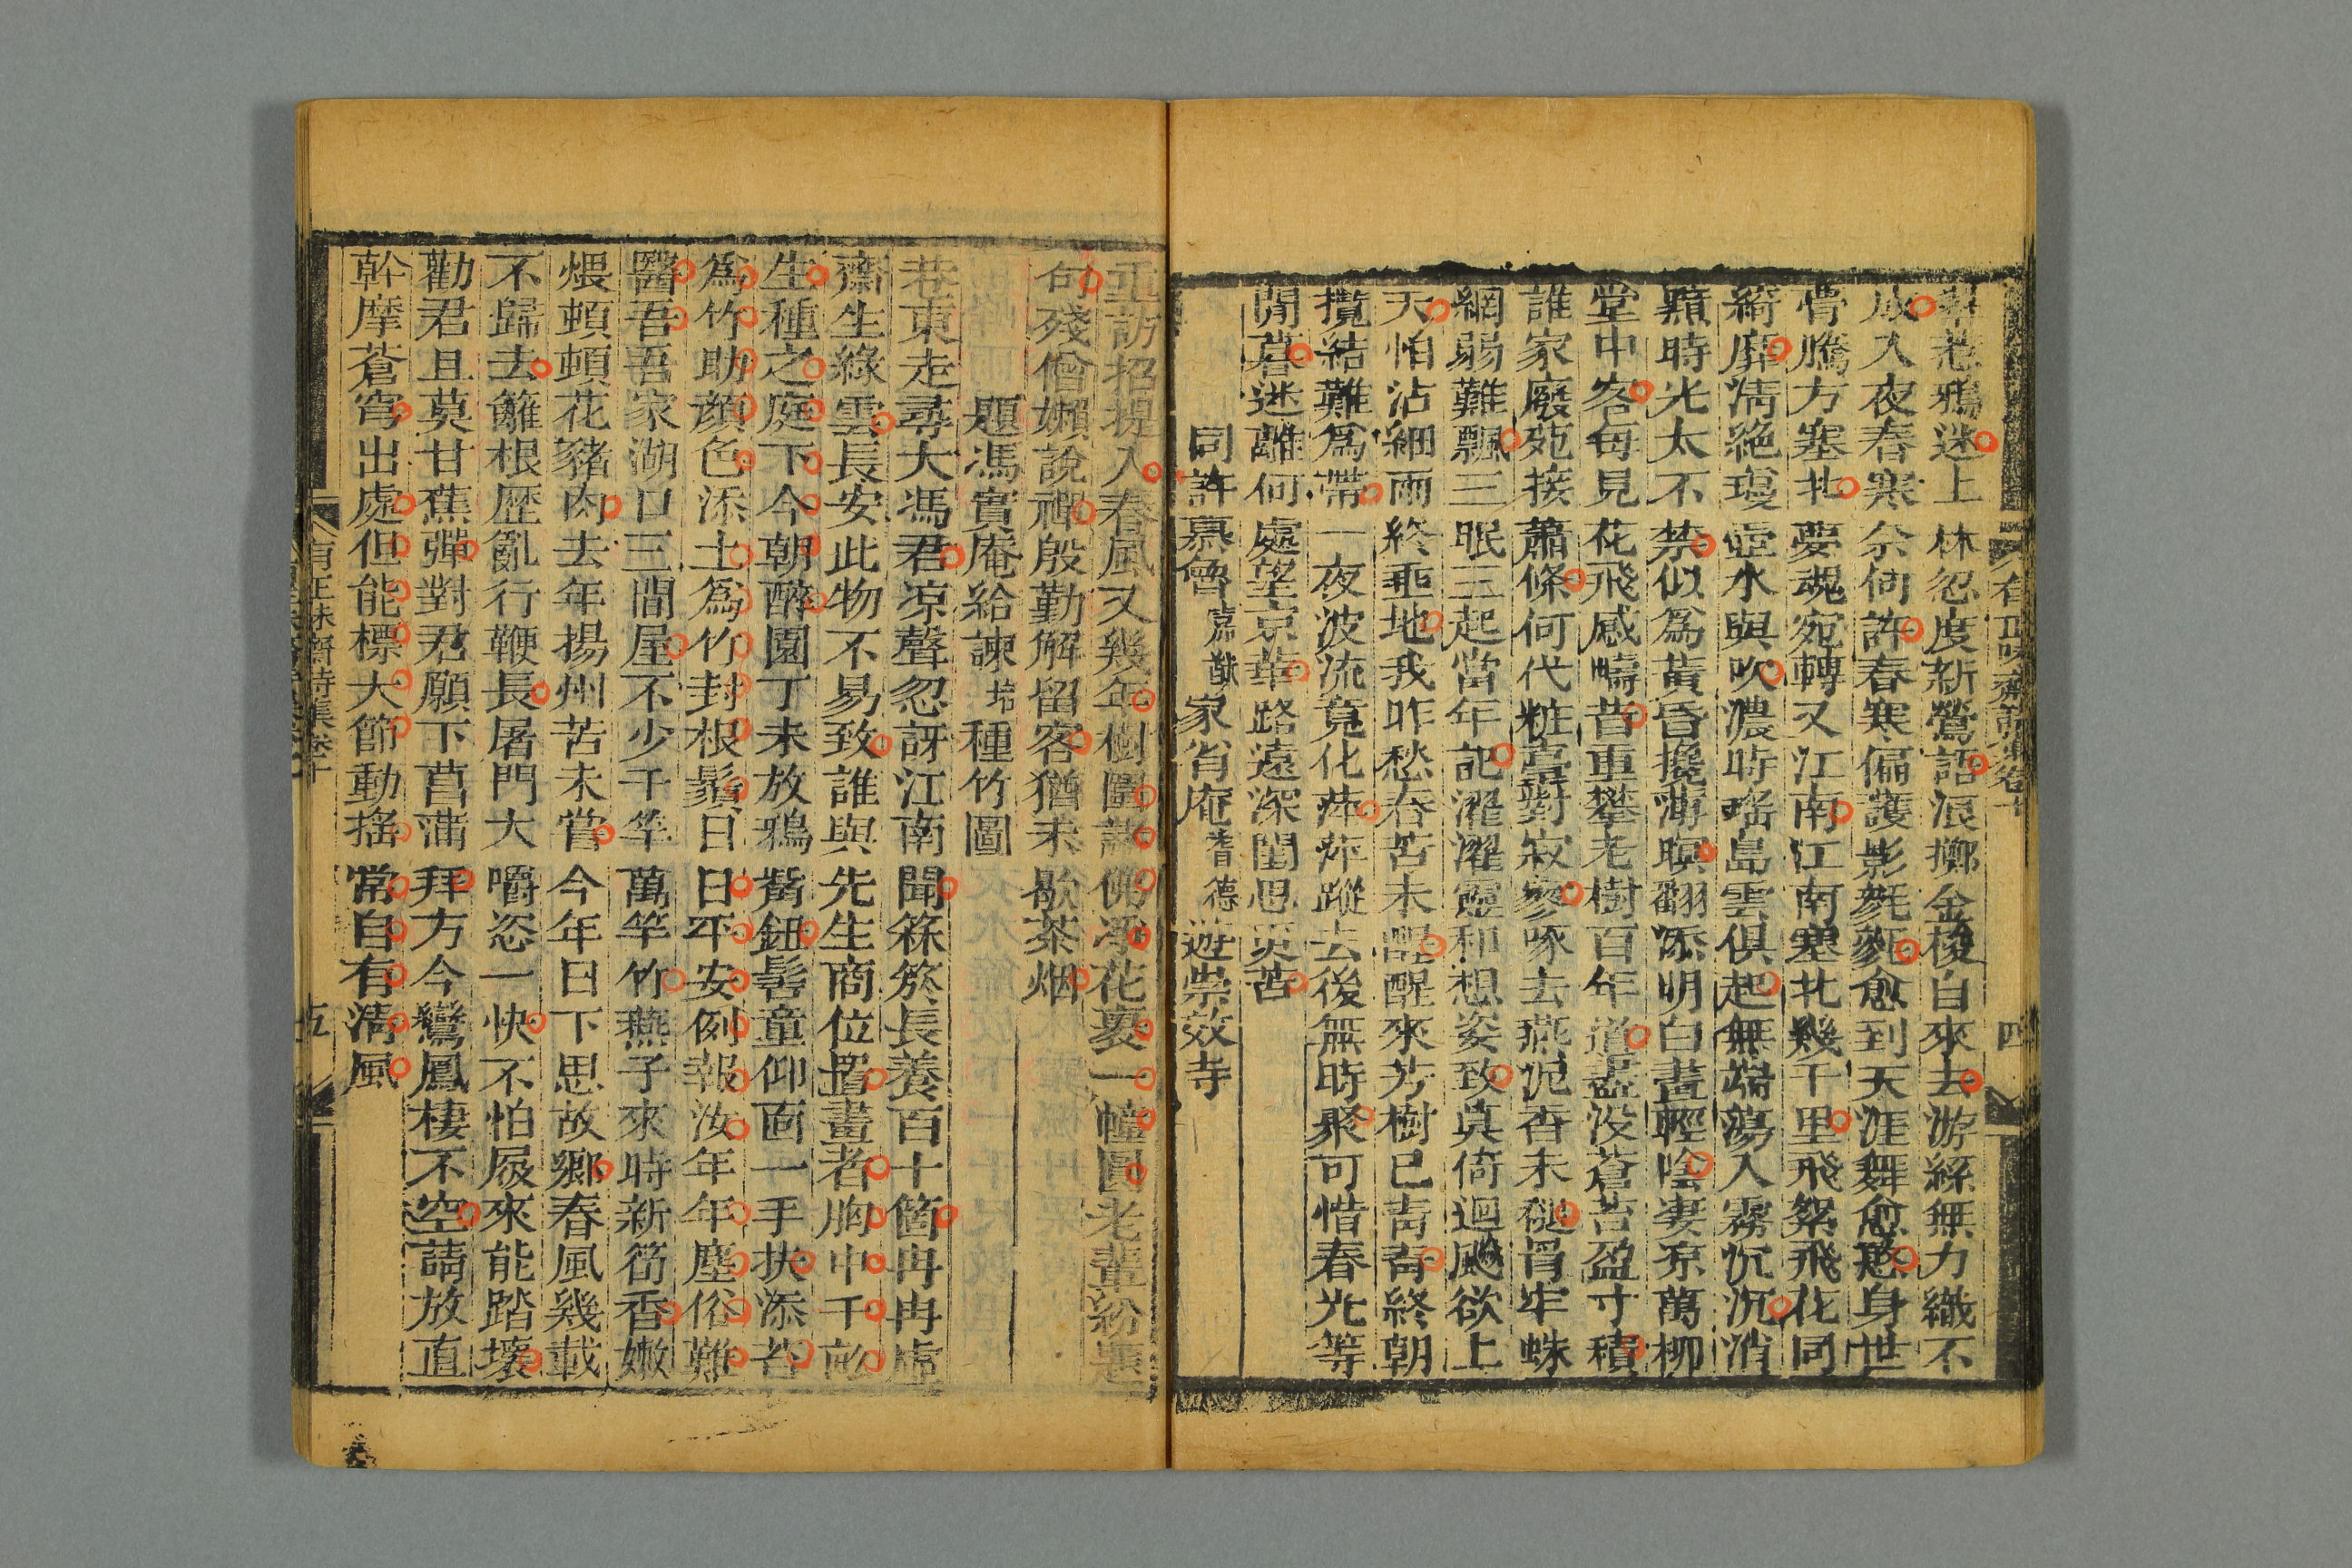 有正味齋詩集卷十
四
愁鴉迷上林忽度新鶯語浪擲金梭自來去游絲無力織不
成入夜春寒奈何許春寒偏護影毿毿愈到天涯舞愈憨身世
骨騰方塞北夢魂宛轉又江南江南塞北幾千里飛絮飛花同
綺靡淸絶瓊壺水與吹濃時瑤島雲俱起無端蕩入霧沉沉消
顥時光太不禁似爲黃昏攙薄暝翻添明白畫輕陰凄凉萬柳
堂中客每見花飛感疇昔重攀老樹百年道盡没蒼苔盈寸積
誰家廢苑接蕭條何代粧臺對寂寥啄去燕泥香未褪罥牢蛛
網弱難飄三眠三起當年記濯濯靈和想姿致眞倚迴颷欲上
天怕沾細雨終垂地我昨愁春苦未醒醒來芳樹已靑靑終朝
攬結難爲帶一夜波流竟化萍萍蹤去後無時聚可惜春光等
閒暮迷離何處望京華路遠深閨思更苦
同許慕魯嘉猷家省庵耆德遊崇效寺
重訪招提入春風又幾年樹圍諸佛淨花裏一幢圓老輩紛題
句殘僧嬾說禪殷勤解留客猶未歇茶烟
題馮實庵給諫培種竹圖
巷東走尋大馮君凉聲忽訝江南聞箖箊長養百十箇冉冉虛
齋生綠雲長安此物不易致誰與先生商位置畫者胸中千畝
生種之庭下今朝醉園丁未放鴉觜鈕髻童仰面一手抉添苔
爲竹助顏色添土爲竹封根鬚日日平安例報汝年年塵俗難
醫吾吾家湖口三間屋不少千竿萬竿竹燕子來時新筍香嫩
煨頓頓花豬肉去年揚州苦未嘗今年日下思故鄉春風幾載
不歸去籬根歷亂行鞭長屠門大嚼恣一快不怕屐來能踏壞
勸君且莫甘蕉彈對君願下菖蒲拜方今鸞鳳棲不空請放直
幹摩蒼穹出處但能標大節動搖常自有淸風
有正味齋詩集卷十
五